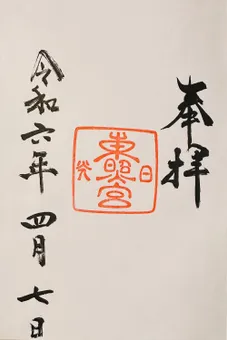 奉拝
日光
東照宮
令和六年四月七日